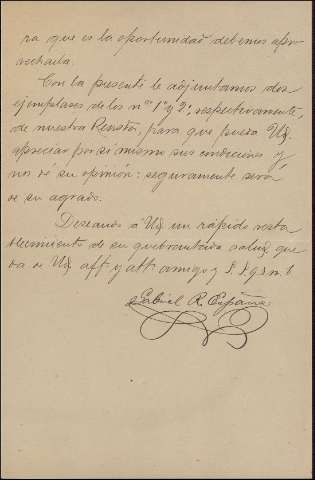 ra que es la oportunidad debemos apro-
vecharla.
Con la presente le adjuntamos dos
ejemplares de los nos 1º y 2º, respectivamente,
de nuestra Revista, para que pueda Ud.
apreciar por sí mismo sus condiciones y
nos dé su opinión: seguramente será
de su agrado.
Deseando á Ud. un rápido resta-
blecimiento de su quebrantada salud, que-
da de Ud. aff. y att. amigo y S. S. q. s. m. b.
Gabriel R. España